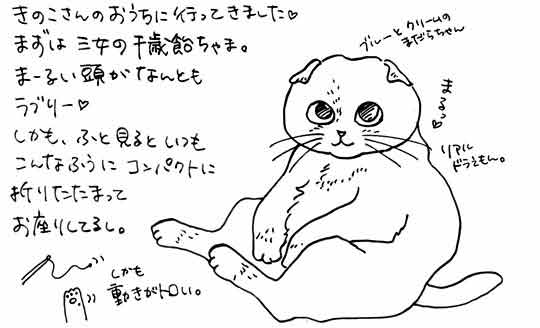 きのこさんのおうちに行ってきました♡
まずは三女の千歳飴ちゃま。
まーるい頭がなんとも
ラブリー♡
しかも、ふと見るといつも
こんなふうにコンパクトに
折りたたまって
お座りしてるし。
しかも
動きがトロい。
ブルーとクリームの
まだらちゃん
まるっ♡
リアル
ドラえもん。